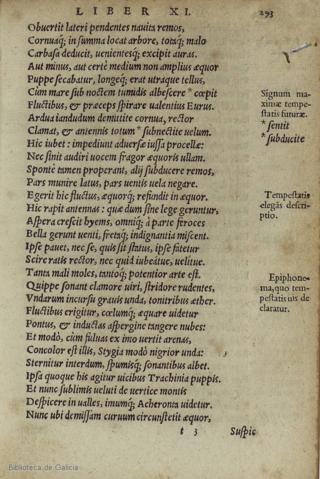 LIBER XI.
293
Obuertit lateri pendentes nauita remos,
Cornuaq; in summa locat arbore, totaq; malo
Carbasa deducit, uenientesq; excipit auras.
Aut minus, aut certè medium non amplius æquor
Puppe secabatur, longeq; erat utraque tellus,
Cùm mare sub noctem tumidis albescere * cœpit
Fluctibus, & præceps spirare ualentius Eurus.
Ardua iandudum demittite cornua, rector
Clamat, & antennis totum * subnectite uelum.
Hic iubet: impediunt aduersæ iussa procellæ:
Nec sinit audiri uocem fragor æquoris ullam.
Sponte tamen properant, alij subducere remos,
Pars munire latus, pars uentis uela negare.
Egerit hic fluctus, æquorq; refundit in æquor.
Hic rapit antennas: quæ dum sine lege geruntur,
Aspera crescit hyems, omniq; à parte feroces
Bella gerunt uenti, fretaq; indignantia miscent.
Ipse pauet, nec se, quis sit status, ipse fatetur
Scire ratis rector, nec quid iubeátue, uelitue.
Tanta mali moles, tantoq; potentior arte est.
Quippe sonant clamore uiri, stridore rudentes,
Vndarum incursu grauis unda, tonitribus æther.
Fluctibus erigitur, cœlumq; æquare uidetur
Pontus, & inductas aspergine tangere nubes:
Et modò, cùm fuluas ex imo uertit arenas,
Concolor est illis, Stygia modò nigrior unda:
Sternitur interdum, spumisq; sonantibus albet.
Ipsa quoque his agitur uicibus Trachinia puppis.
Et nunc sublimis ueluti de uertice montis
Despicere in ualles, imumq; Acheronta uidetur.
Nunc ubi demissam curuum circunstetit æquor,
t 3
Suspic
Signum ma-
ximæ tempe-
statis futuræ.
* sentit
* subducite
Tempestatis
elegãs descri-
ptio.
Epiphone-
ma, quo tem-
pestatis uis de
claratur.
Biblioteca de Galicia